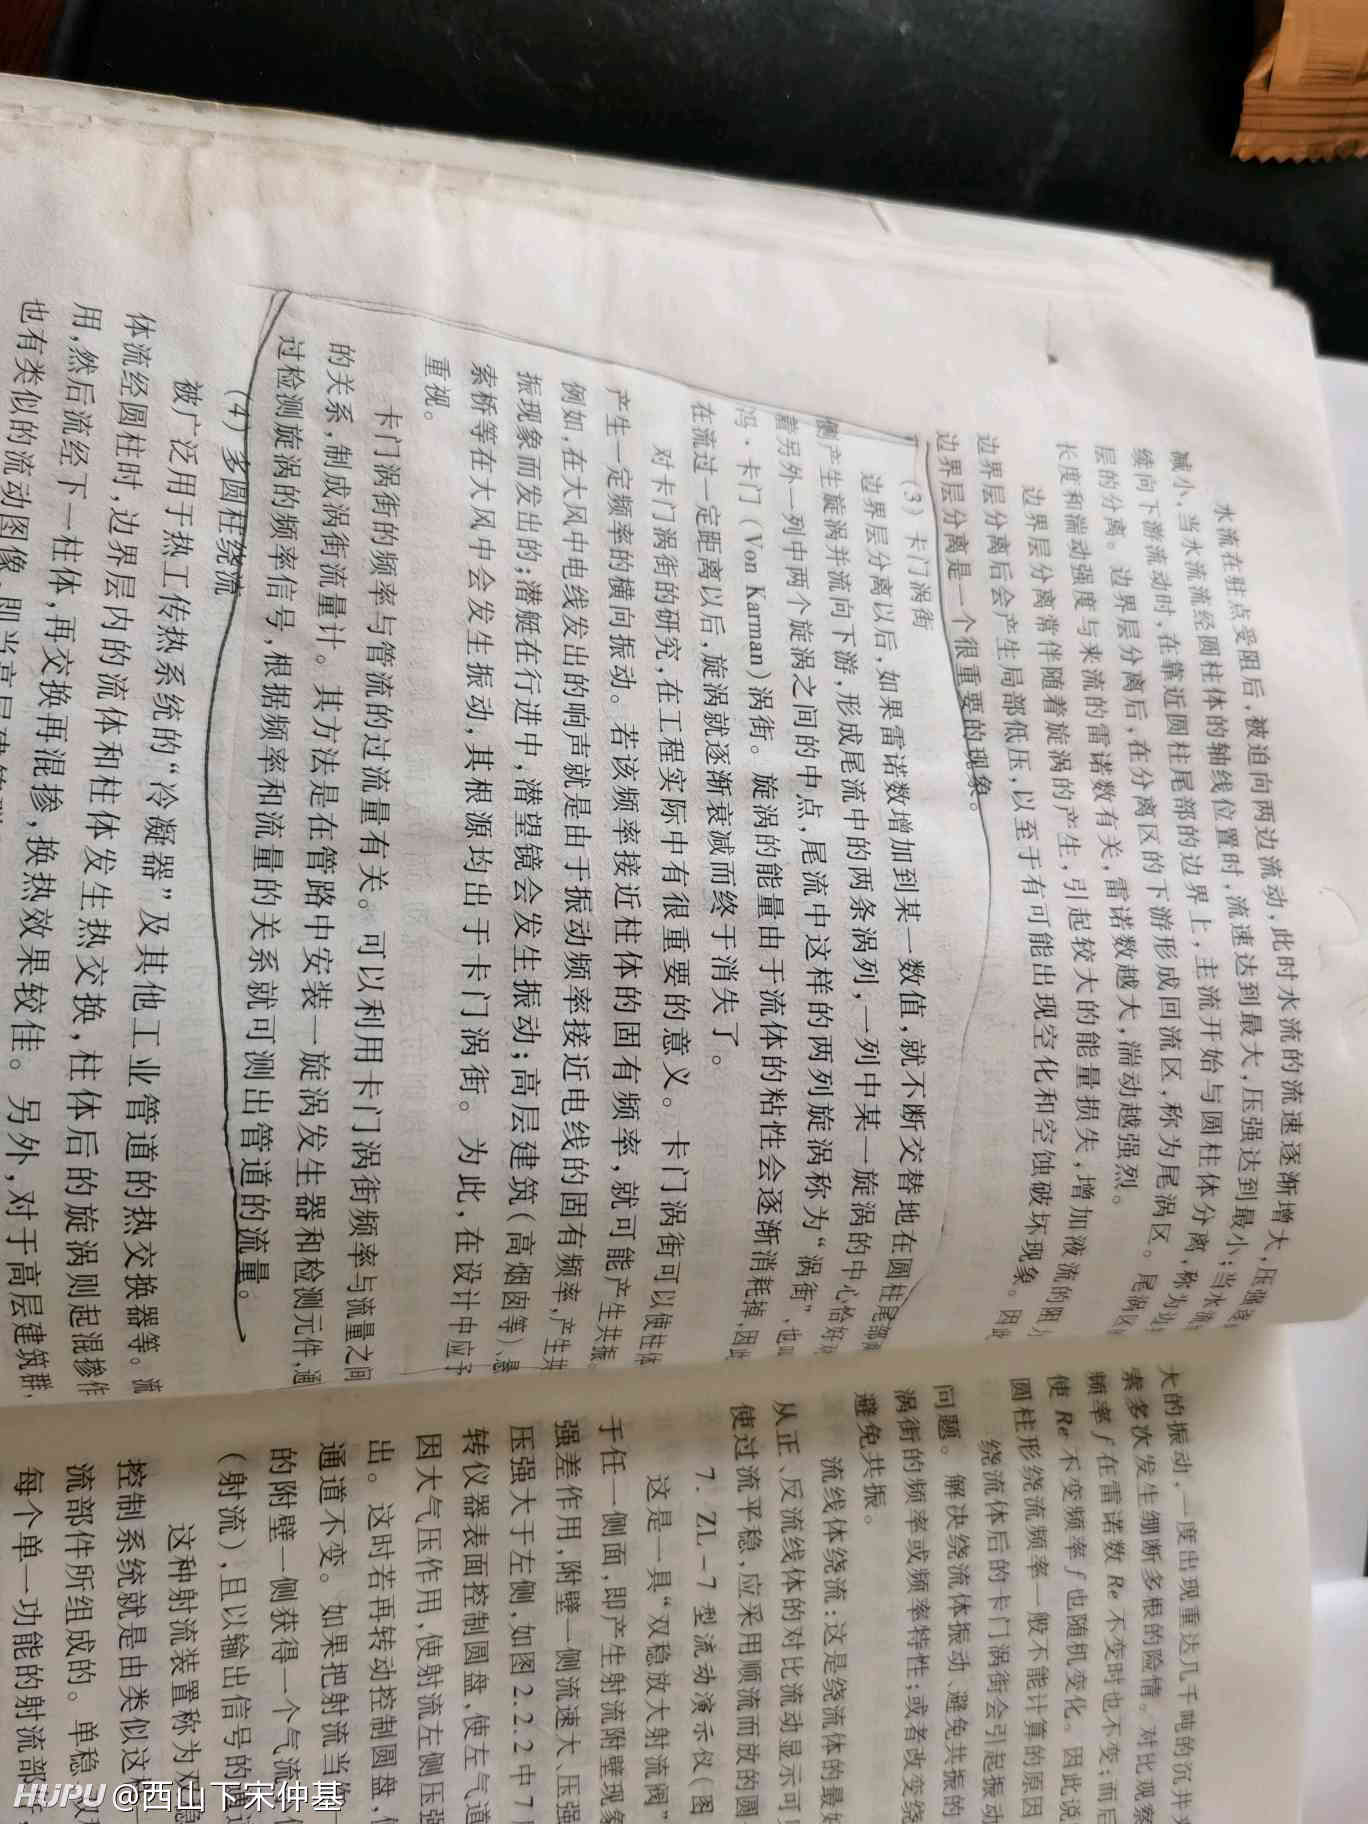 水流在驻点受阻后，被迫向两边流动，此时水流的流速逐渐增大，压强逐
减小，当水流流经圆柱体的轴线位置时，流速达到最大，压强达到最小；当水流
续向下游流动时，在靠近圆柱尾部的边界上，主流开始与圆柱体分离，称为边
层的分离。边界层分离后，在分离区的下游形成回流区，称为尾涡区。尾涡区
长度和湍动强度与来流的雷诺数有关，雷诺数越大，湍动越强烈。
边界层分离常伴随着旋涡的产生，引起较大的能量损失，增加液流的阻力
边界层分离后会产生局部低压，以至于有可能出现空化和空蚀破坏现象。因此
边界层分离是一个很重要的现象。
(3) 卡门涡街
边界层分离以后，如果雷诺数增加到某一数值，就不断交替地在圆柱尾部两
侧产生旋涡并流向下游，形成尾流中的两条涡列，一列中某一旋涡的中心恰好
着另外一列中两个旋涡之间的中点，尾流中这样的两列旋涡称为“涡街”，也叫
冯·卡门（Von Karman）涡街。旋涡的能量由于流体的粘性会逐渐消耗掉，因此
在流过一定距离以后，旋涡就逐渐衰减而终于消失了。
对卡门涡街的研究，在工程实际中有很重要的意义。卡门涡街可以使柱体
产生一定频率的横向振动。若该频率接近柱体的固有频率，就可能产生共振。
例如，在大风中电线发出的响声就是由于振动频率接近电线的固有频率，产生共
振现象而发出的；潜艇在行进中，潜望镜会发生振动；高层建筑（高烟囱等）、悬
索桥等在大风中会发生振动，其根源均出于卡门涡街。为此，在设计中应予
重视。
卡门涡街的频率与管流的过流量有关。可以利用卡门涡街频率与流量之间
的关系，制成涡街流量计。其方法是在管路中安装一旋涡发生器和检测元件，通
过检测旋涡的频率信号，根据频率和流量的关系就可测出管道的流量。
(4) 多圆柱绕流
被广泛用于热工传热系统的“冷凝器”及其他工业管道的热交换器等。流
体流经圆柱时，边界层内的流体和柱体发生热交换，柱体后的旋涡则起混掺作
用，然后流经下一柱体，再交换再混掺，换热效果较佳。另外，对于高层建筑群，
也有类似的流动图像，即当高层建筑群
大的振动，一度出现重达几千吨的沉井
索多次发生绷断多根的险情。对比观察
频率f在雷诺数Re不变时也不变；而后
使Re不变频率f也随机变化。因此说
圆柱形绕流频率一般不能计算的原因
绕流体后的卡门涡街会引起振动
问题。解决绕流体振动、避免共振的
涡街的频率或频率特性；或者改变绕
避免共振。
流线体绕流：这是绕流体的最好
从正、反流线体的对比流动显示可见
使过流平稳，应采用顺流而放的圆
7. ZL-7型流动演示仪（图
这是一具“双稳放大射流阀”
于任一侧面，即产生射流附壁现象
强差作用，附壁一侧流速大、压强
压强大于左侧，如图2.2.2中7
转仪器表面控制圆盘，使左气道
因大气压作用，使射流左侧压强
出。这时若再转动控制圆盘，
通道不变。如果把射流当作
的附壁一侧获得一个气流
（射流），且以输出信号的
这种射流装置称为双稳
控制系统就是由类似这
流部件所组成的。单稳
每个单一功能的射流部
HUPU @西山下宋仲基